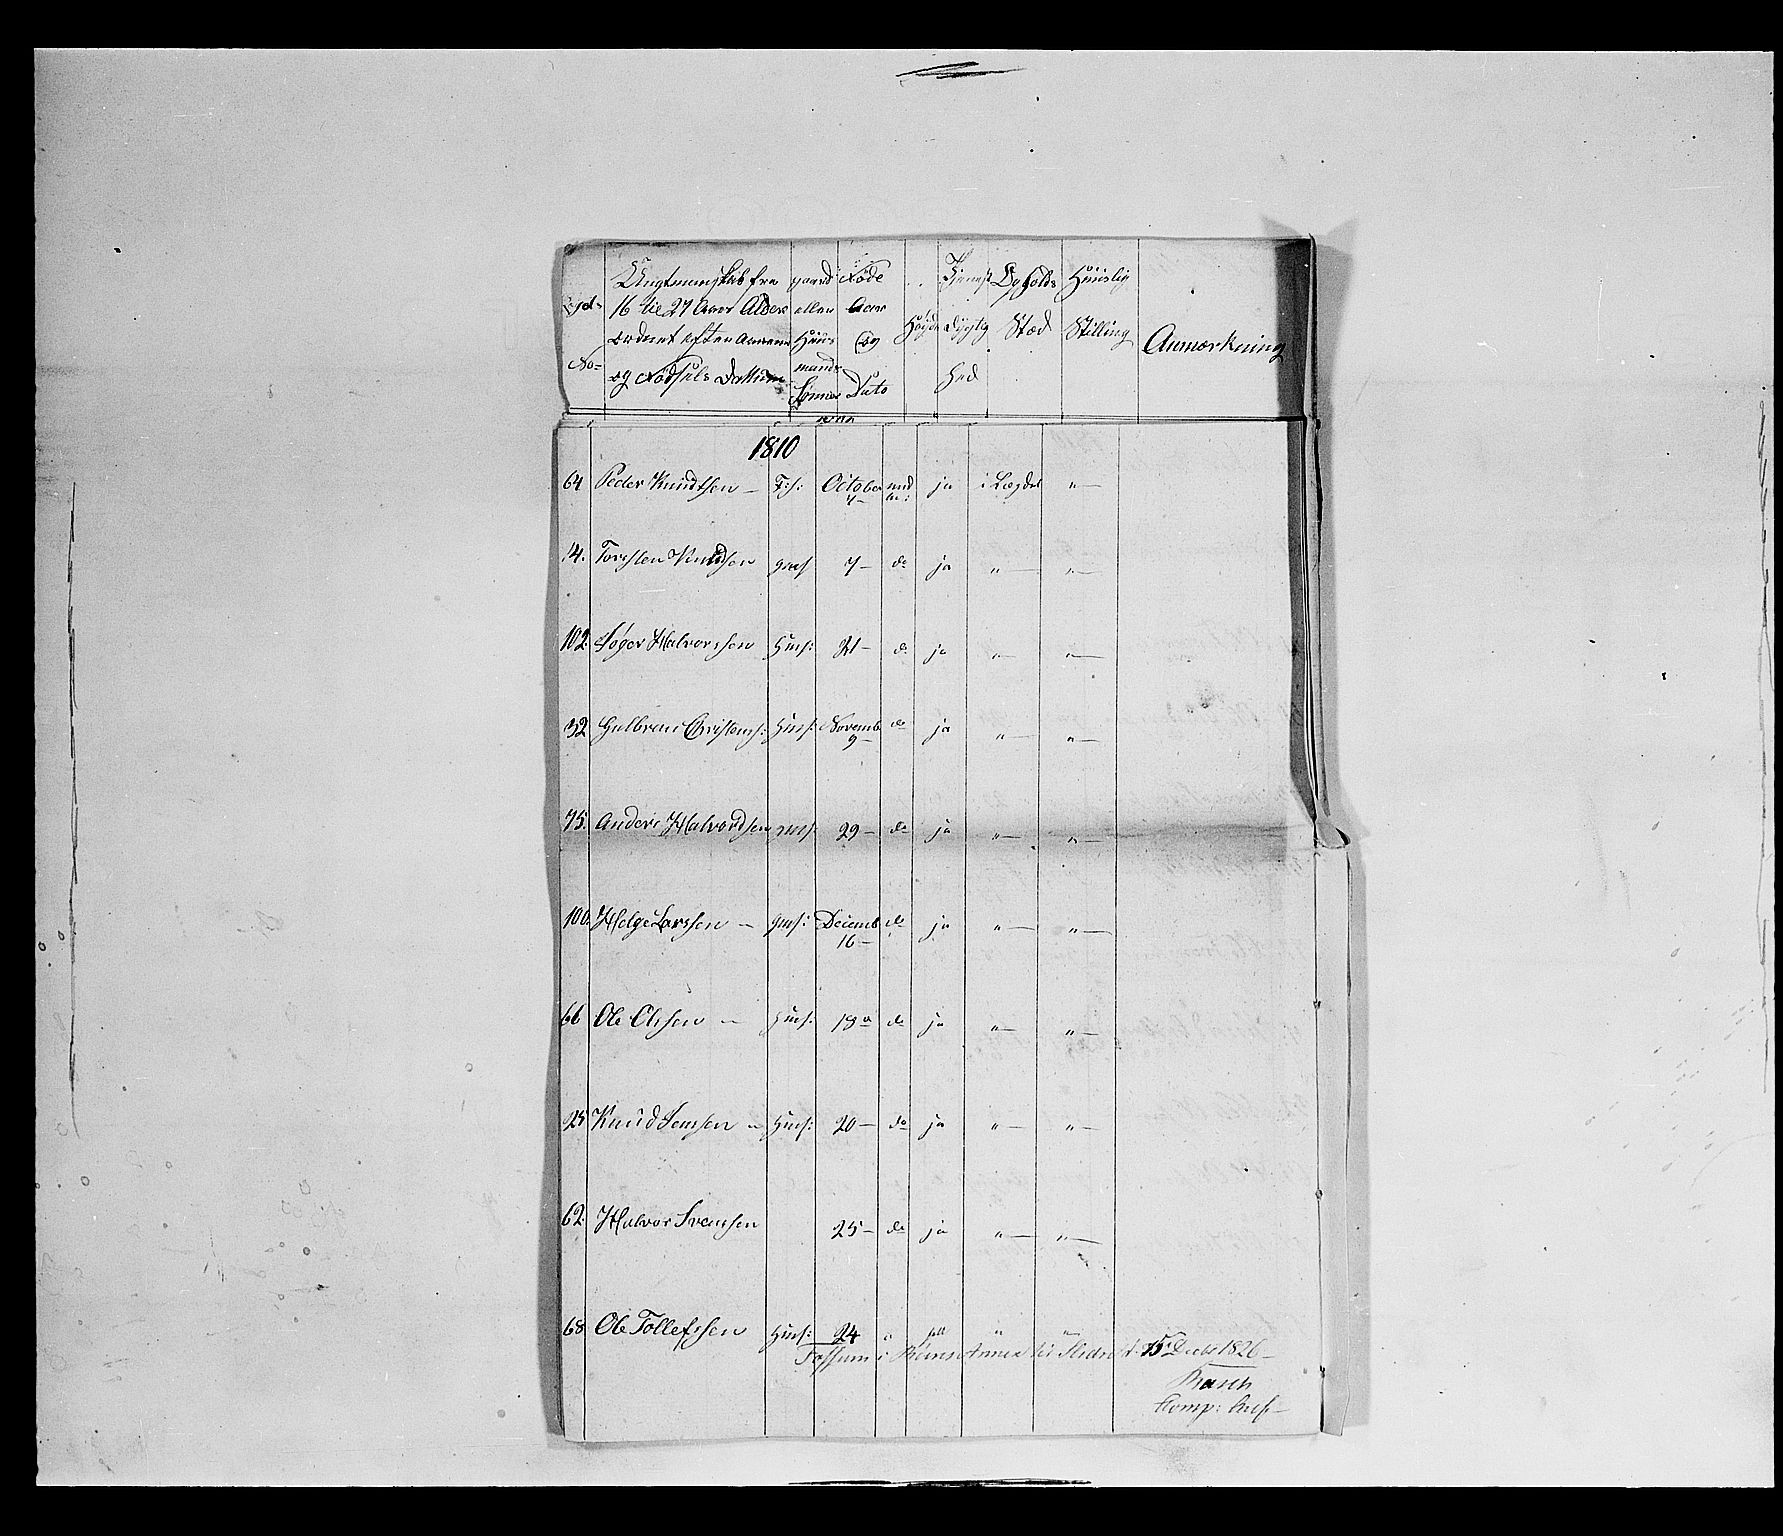 Lægds No=
Ungtmandskab fra
16 til 27 Aars Alder
ordnet efter Aarene
og Fødsels Dattum
gaard
eller
Huus
mands
Sønner
Føde
Aar
og
Dato
Høyde
Tieneste
dygtig
hed
Opholds
Stæd
Huuslig
Stilling
Anmærkning
1810
64 Peder Knudtsen — October 7 — und m: ja i Lægdet " —
14. Torsten Knudsen gms 7 — do ja " — " —
102 Halvorssen Hms: 21 — do ja " — " —
32 Gulbran Christens: Hms: Novemb 9 — do ja " — " —
75. Anders Halvordsen gms: 29 — do ja " — " —
100 Helge Larssen — gms: Decemb 16 — do ja " — " —
66 Ole Olssen — Hms: 18 do ja " — " —
25 Knud Jenssen — Hms: 20 — do ja " — " —
62. Halvor Svenssen 25 — do ja " — " —
68 Ole Tollefssen Hms: 24 " "
Fossum i Annex til Slidre d. 15 Decbr 1826 —
Komp: Chef —